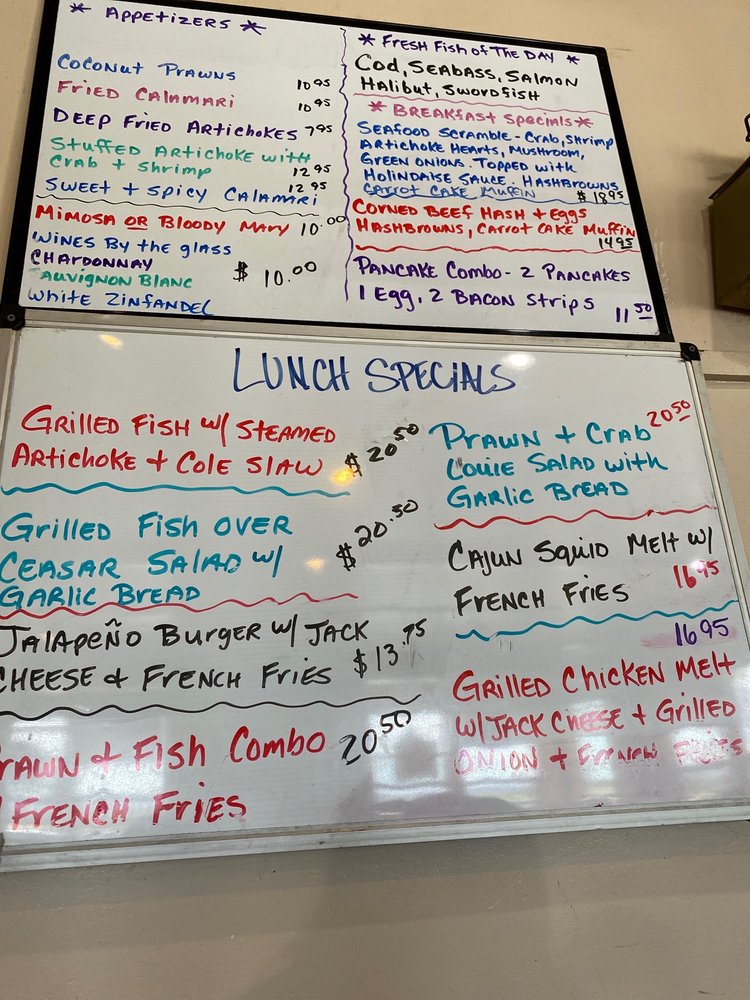 * APPETIZERS *
COCONUT PRAWNS 10 95
FRIED CALAMARI 10 95
DEEP FRIED ARTICHOKES 7 95
STUFFED ARTICHOKE WITH
CRAB + SHRIMP 12 95
SWEET + SPICY CALAMARI 12 95
MIMOSA OR BLOODY MARY 10.00
WINES BY THE GLASS
CHARDONNAY
AUVIGNON BLANC $ 10.00
WHITE ZINFANDEL
* FRESH FISH OF THE DAY *
COD, SEABASS, SALMON
HALIBUT, SWORDFISH
* BREAKFAST SPECIALS *
SEAFOOD SCRAMBLE - CRAB, SHRIMP
ARTICHOKE HEARTS, MUSHROOM,
GREEN ONIONS. TOPPED WITH
HOLINDAISE SAUCE. HASHBROWNS
CARROT CAKE MUFFIN $ 18 95
CORNED BEEF HASH + EGGS
HASHBROWNS, CARROT CAKE MUFFIN
14 95
PANCAKE COMBO - 2 PANCAKES
1 EGG, 2 BACON STRIPS 11 50
LUNCH SPECIALS
GRILLED FISH W/ STEAMED
ARTICHOKE + COLE SLAW $ 20.50
GRILLED FISH OVER
CEASAR SALAD W/ $ 20.50
GARLIC BREAD
JALAPEÑO BURGER W/ JACK
CHEESE & FRENCH FRIES $ 13.95
RAWN + FISH COMBO 20 50
FRENCH FRIES
PRAWN + CRAB 20 50
LOUIE SALAD WITH
GARLIC BREAD
CAJUN SQUID MELT W/
FRENCH FRIES 16 95
16 95
GRILLED CHICKEN MELT
W/ JACK CHEESE + GRILLED
ONION + FRENCH FRIES